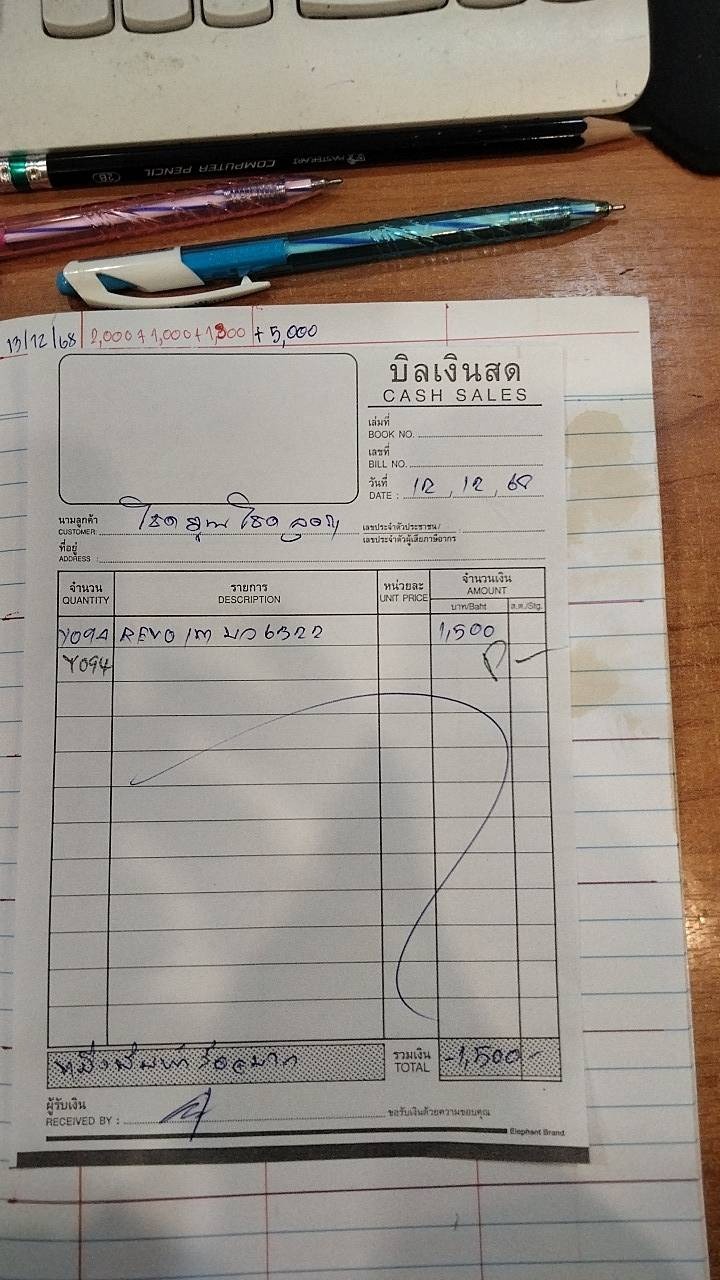 MASTERART COMPUTER PENCIL 2B
13/12/68 2,000+1,000+1,300 + 5,000
บิลเงินสด
CASH SALES
เล่มที่
BOOK NO.
เลขที่
BILL NO.
วันที่
DATE : 12, 12, 68
นามลูกค้า
CUSTOMER:
เลขประจำตัวประชาชน /
เลขประจำตัวผู้เสียภาษีอากร
ที่อยู่
ADDRESS :
จำนวน รายการ หน่วยละ จำนวนเงิน
QUANTITY DESCRIPTION UNIT PRICE AMOUNT
บาท/Baht ส.ต./Stg.
Y094 REVO 6322 1,500
Y094
รวมเงิน
TOTAL -1,500-
ผู้รับเงิน
RECEIVED BY : ขอรับเงินด้วยความขอบคุณ
Elephant Brand